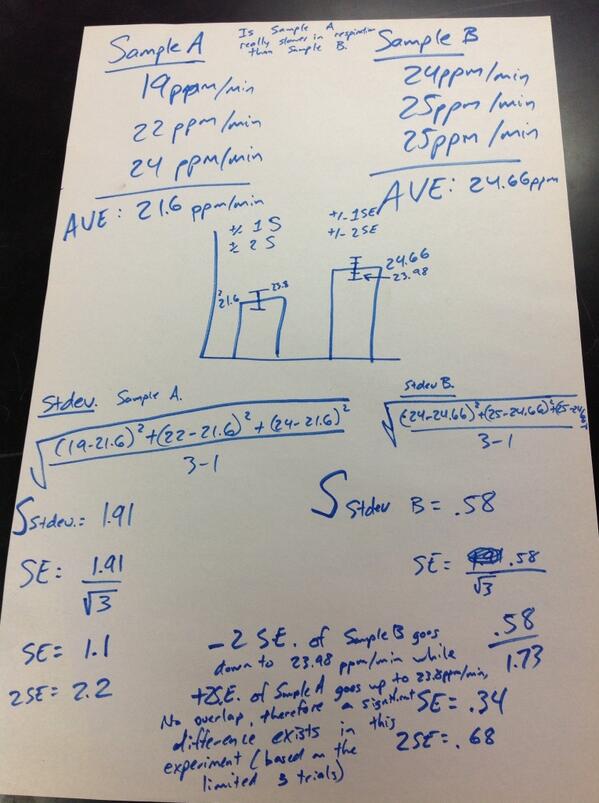 Is Sample A
really slower in respiration
than Sample B.
Sample A
19ppm/min
22 ppm/min
24 ppm/min
AVE: 21.6 ppm/min
Sample B
24ppm/min
25ppm/min
25ppm/min
AVE: 24.66ppm
+/- 1 S
± 2 S
+/- 1SE
+/- 2SE
21.6
23.8
24.66
23.98
Stdev. Sample A.
√((19-21.6)²+(22-21.6)²+(24-21.6)²
3-1
Stdev B.
√((24-24.66)²+(25-24.66)²+(25-24.6
3-1
Sstdev.= 1.91
SE= 1.91
√3
SE= 1.1
2SE= 2.2
S Stdev B = .58
SE= .58
√3
.58
1.73
SE= .34
2SE= .68
-2 SE. of Sample B goes
down to 23.98 ppm/min while
+2S.E. of Sample A goes up to 23.8ppm/min,
No overlap, therefore a significant
difference exists in this
experiment (based on the
limited 3 trials)